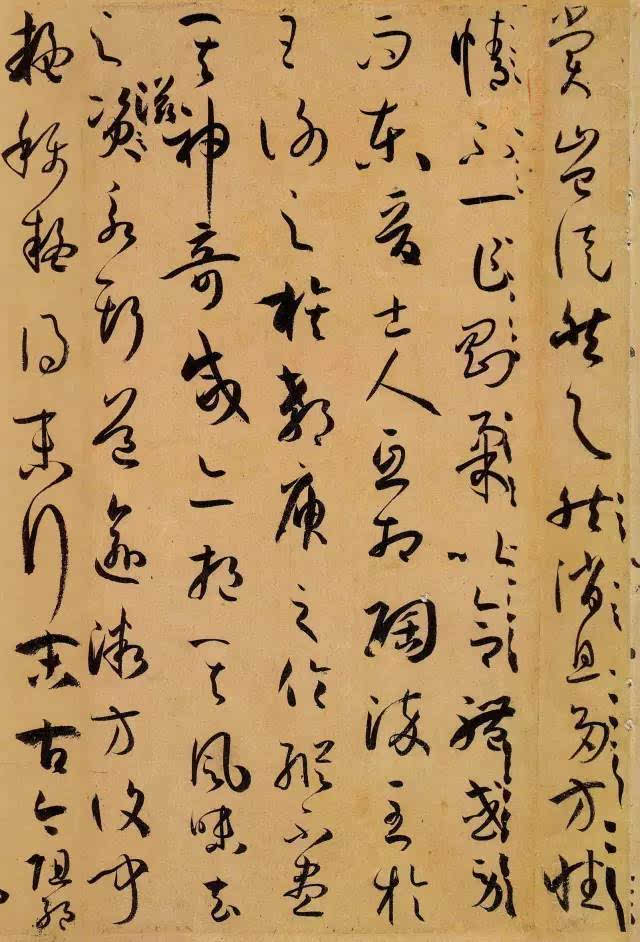 賞豈徒然與然消息多方性
情不一乍剛柔以合體
而東晉士人互相陶淬至於
王謝之族郗庾之倫縱不盡
其神奇咸亦挹其風味去
之滋永斯道愈微方復聞
疑稱疑得末行末古今阻絕